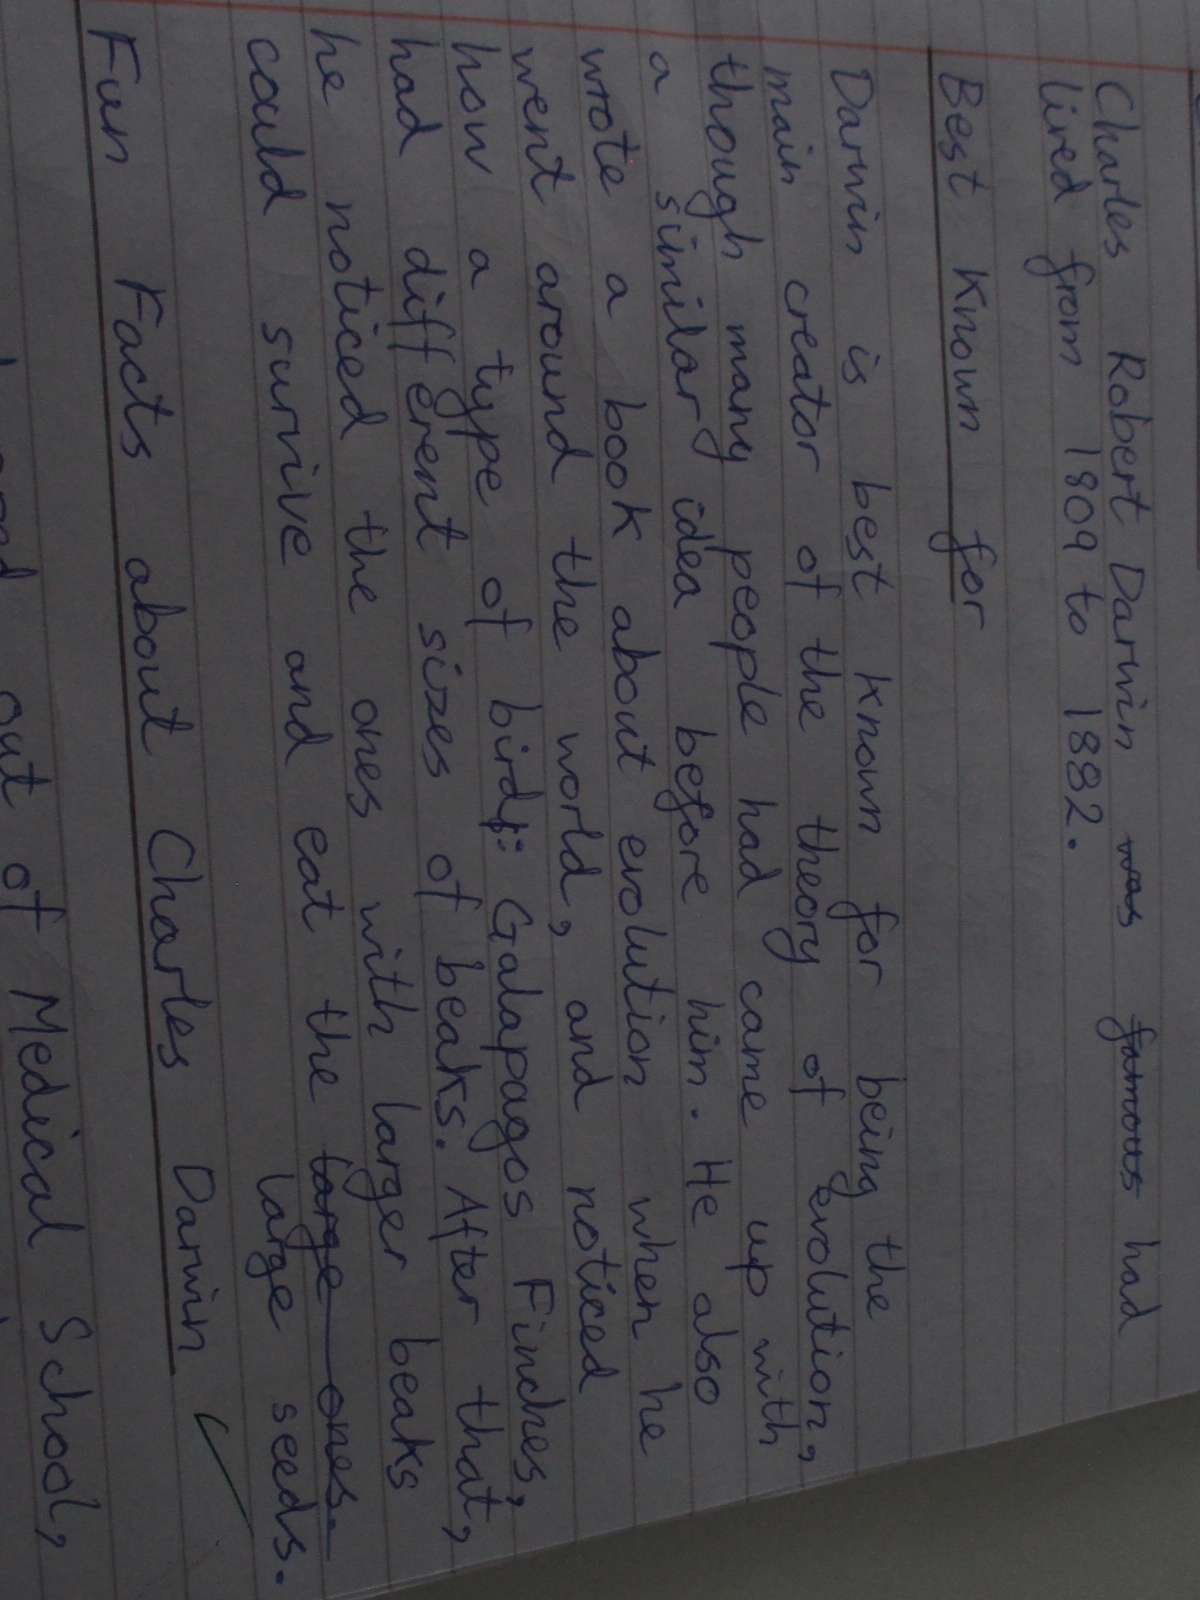 Charles Robert Darwin was famous had
lived from 1809 to 1882.
Best Known for
Darwin is best known for being the
main creator of the theory of evolution,
though many people had came up with
a similar idea before him. He also
wrote a book about evolution when he
went around the world, and noticed
how a type of bird: Galapagos Finches,
had different sizes of beaks. After that,
he noticed the ones with larger beaks
could survive and eat the large ones.
large seeds.
Fun Facts about Charles Darwin
out of Medical School,